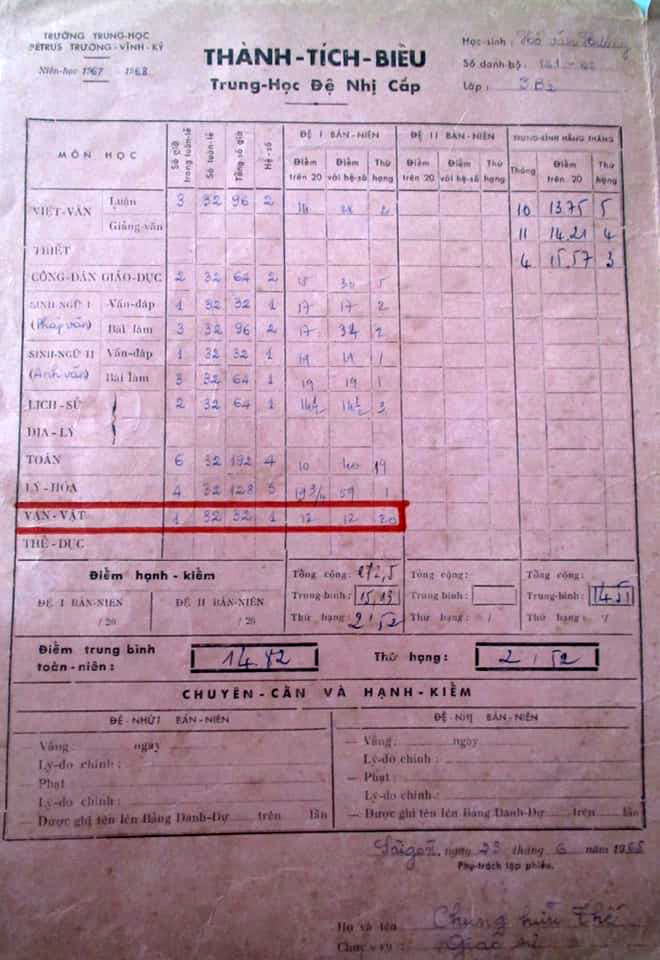 TRƯỜNG TRUNG-HỌC
PETRUS TRƯƠNG-VĨNH-KÝ
Niên-học 1967 1968
THÀNH-TÍCH-BIỂU
Trung-Học Đệ Nhị Cấp
Học-sinh : Hồ Văn
Số danh-bộ :
Lớp : 3B2
MÔN HỌC
Số giờ trong tuần-lễ
Số tuần-lễ
Tổng số giờ
Hệ-số
ĐỆ I BÁN-NIÊN
ĐỆ II BÁN-NIÊN
TRUNG-BÌNH HẰNG THÁNG
Điểm trên 20
Điểm với hệ-số
Thứ hạng
Điểm trên 20
Điểm với hệ-số
Thứ hạng
Tháng
Điểm trên 20
Thứ hạng
VIỆT-VĂN Luận 3 32 96 2 14 28 2 10 13.75 5
Giảng-văn 11 14.21 4
TRIẾT 4 15.57 3
CÔNG-DÂN GIÁO-DỤC 2 32 64 2 15 30 5
SINH-NGỮ I Vấn-đáp 1 32 32 1 17 17 2
(Pháp văn) Bài làm 3 32 96 2 17 34 2
SINH-NGỮ II Vấn-đáp 1 32 32 1 19 19 1
(Anh văn) Bài làm 3 32 64 1 19 19 1
LỊCH-SỬ 2 32 64 1 14½ 14½ 3
ĐỊA-LÝ
TOÁN 6 32 192 4 10 40 19
LÝ-HÓA 4 32 128 3 19 3/4 59 1
VẠN-VẬT 1 32 32 1 12 12 20
THỂ-DỤC
Điểm hạnh-kiểm
ĐỆ I BÁN-NIÊN ĐỆ II BÁN-NIÊN
/20 /20
Tổng cộng: 272,5 Tổng cộng: Tổng cộng:
Trung-bình: 15,13 Trung-bình: Trung-bình: 14.51
Thứ hạng: 2/52 Thứ hạng: / Thứ hạng: /
Điểm trung bình toàn-niên : 14.82 Thứ hạng: 2/52
CHUYÊN-CẦN VÀ HẠNH-KIỂM
ĐỆ-NHỨT BÁN-NIÊN ĐỆ-NHỊ BÁN-NIÊN
— Vắng: ngày — Vắng: ngày
Lý-do chính : Lý-do chính :
— Phạt — Phạt :
Lý-do chính : Lý-do chính:
— Được ghi tên lên Bảng Danh-Dự trên lần — Được ghi tên lên Bảng Danh-Dự trên lần
Saigon, ngày 23 tháng 6 năm 1968
Phụ-trách lập phiếu.
Họ và tên Chung Hữu Thế
Chức-vụ : Giáo sư